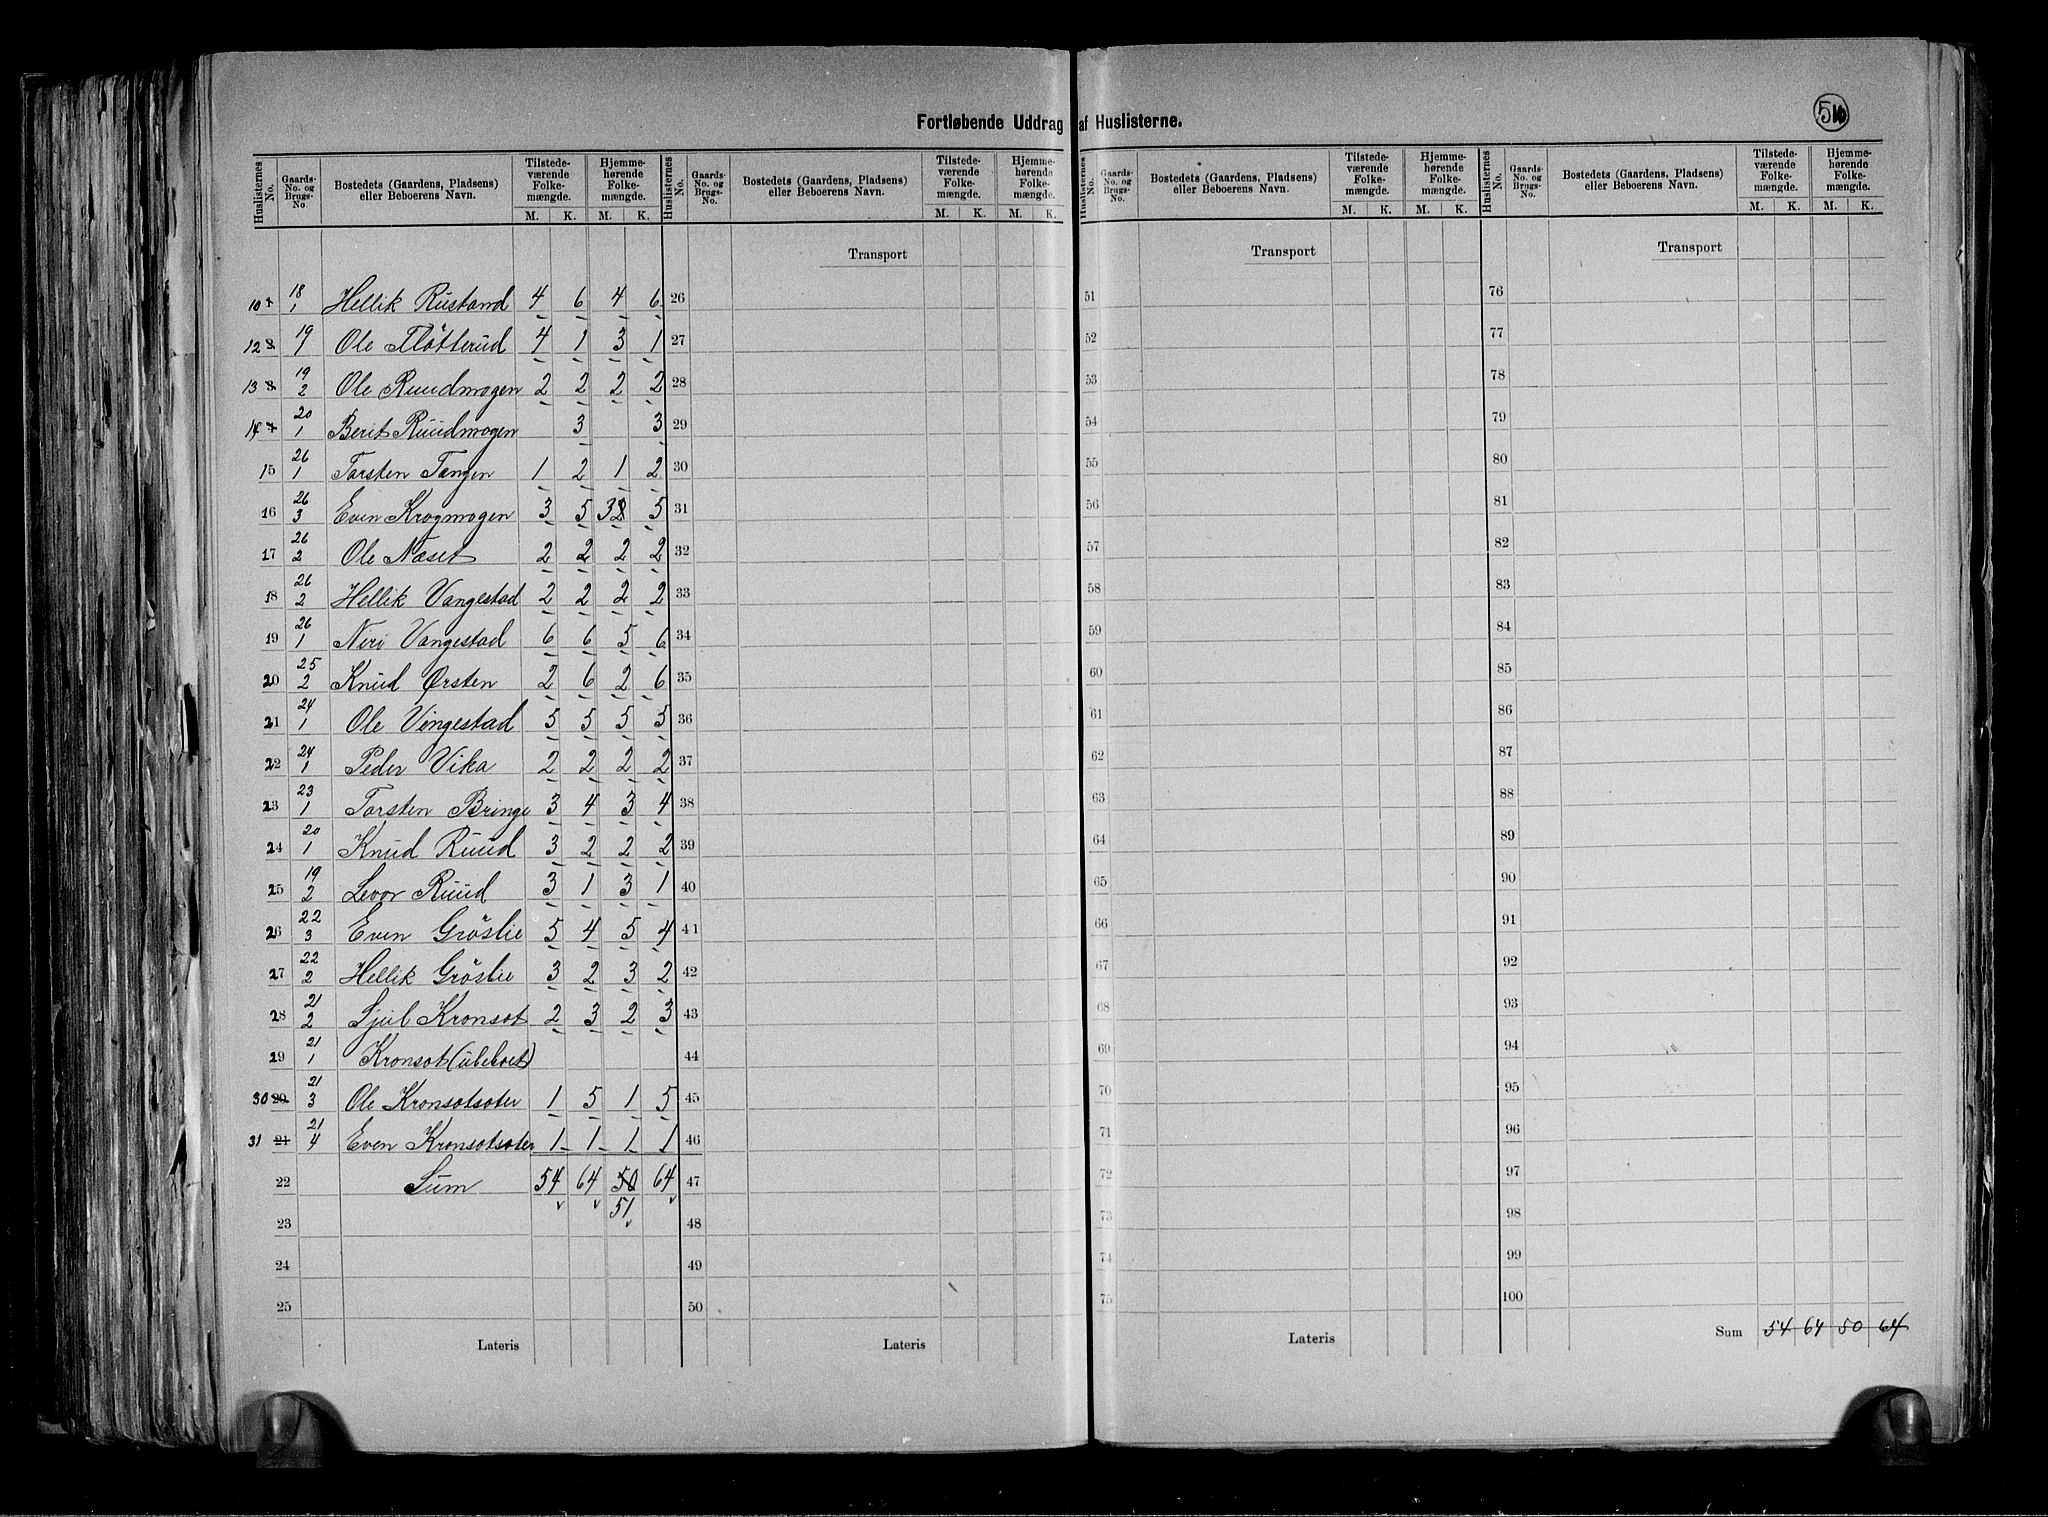 510
Fortløbende Uddrag af Huslisterne.
Huslisternes No. | Gaards-No. og Brugs-No. | Bostedets (Gaardens, Pladsens) eller Beboerens Navn. | Tilstedeværende Folkemængde. M. K. | Hjemmehørende Folkemængde. M. K.
Huslisternes No. | Gaards-No. og Brugs-No. | Bostedets (Gaardens, Pladsens) eller Beboerens Navn. | Tilstedeværende Folkemængde. M. K. | Hjemmehørende Folkemængde. M. K.
Huslisternes No. | Gaards-No. og Brugs-No. | Bostedets (Gaardens, Pladsens) eller Beboerens Navn. | Tilstedeværende Folkemængde. M. K. | Hjemmehørende Folkemængde. M. K.
Huslisternes No. | Gaards-No. og Brugs-No. | Bostedets (Gaardens, Pladsens) eller Beboerens Navn. | Tilstedeværende Folkemængde. M. K. | Hjemmehørende Folkemængde. M. K.
Transport Transport Transport
10 18/1 Hellik Rustand 4 6 4 6 26 51 76
12 19/1 Ole Fløtterud 4 1 3 1 27 52 77
13 19/2 Ole Ruudmogen 2 2 2 2 28 53 78
14 20/1 Berit Ruudmogen 3 3 29 54 79
15 26/1 Torsten Tangen 1 2 1 2 30 55 80
16 26/3 Even Krogmogen 3 5 3 5 31 56 81
17 26/2 Ole Næset 2 2 2 2 32 57 82
18 26/2 Hellik Vangestad 2 2 2 2 33 58 83
19 26/1 Niri Vangestad 6 6 5 6 34 59 84
20 25/2 Knud Ørsten 2 6 2 6 35 60 85
21 24/1 Ole Vingestad 5 5 5 5 36 61 86
22 24/1 Peder Vika 2 2 2 2 37 62 87
23 23/1 Torsten Bringe 3 4 3 4 38 63 88
24 20/1 Knud Ruud 3 2 2 2 39 64 89
25 19/2 Levor Ruud 3 1 3 1 40 65 90
26 22/3 Even Gröslie 5 4 5 4 41 66 91
27 22/2 Hellik Gröslie 3 2 3 2 42 67 92
28 21/2 Sjul Kronsot 2 3 2 3 43 68 93
29 21/1 Kronsot (ubeboet) 44 69 94
30 20 21/3 Ole Kronsotsoter 1 5 1 5 45 70 95
31 21 21/4 Even Kronsotsoter 1 1 1 1 46 71 96
22 Sum 54 64 50 64 47 72 97
51
23 48 73 98
24 49 74 99
25 50 75 100
Lateris Lateris Lateris Sum 54 64 50 64